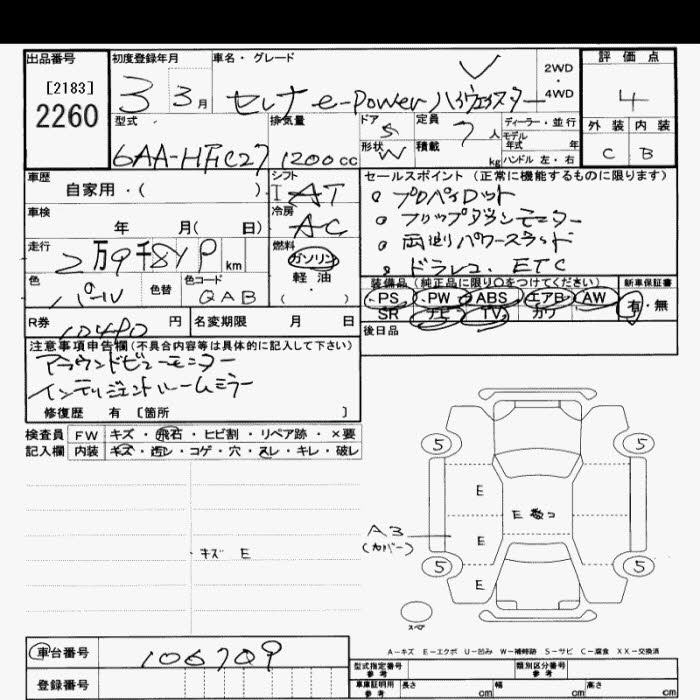 出品番号
[2183]
2260
初度登録年月
3 3月
車名・グレード
セレナ e-Power ハイウェイスター
2WD
4WD
評価点
4
外装 内装
C B
型式
6AA-HFC27
排気量
1200cc
ドア 5
形状 W
定員 7人
積載 kg
ディーラー・並行
モデル年式 年
ハンドル 左・右
車歴
自家用・( )
車検
年 月( 日)
走行
2万9千849km
色
パール
色替
色コード
QAB
シフト
IAT
冷房
AC
燃料
ガソリン
軽油
・
( )
セールスポイント(正常に機能するものに限ります)
プロパイロット
フリップダウンモニター
両側パワースライド
ドラレコ. ETC
装備品(純正品に限り○をつけてください)
PS・PW・ABS・エアB・AW
SR ナビ TV カワ
新車保証書
有・無
後日品
R券 10490円
名変期限 月 日
注意事項申告欄(不具合内容等は具体的に記入して下さい)
アラウンドビューモニター
インテリジェントルームミラー
修復歴 有 [箇所 ]
検査員
記入欄
FW キズ・飛石・ヒビ割・リペア跡・×要
内装 キズ・汚レ・コゲ・穴・スレ・キレ・破レ
キズ E
5 5
E
E 数コ
A3
(カバー)
E
5 5
E
スペア
A-キズ E-エクボ U-凹み W-補修跡 S-サビ C-腐食 XX-交換済
車台番号 106709
登録番号
型式指定番号
参考
類別区分番号
参考
車庫証明用
参考
長さ cm 幅 cm 高さ cm